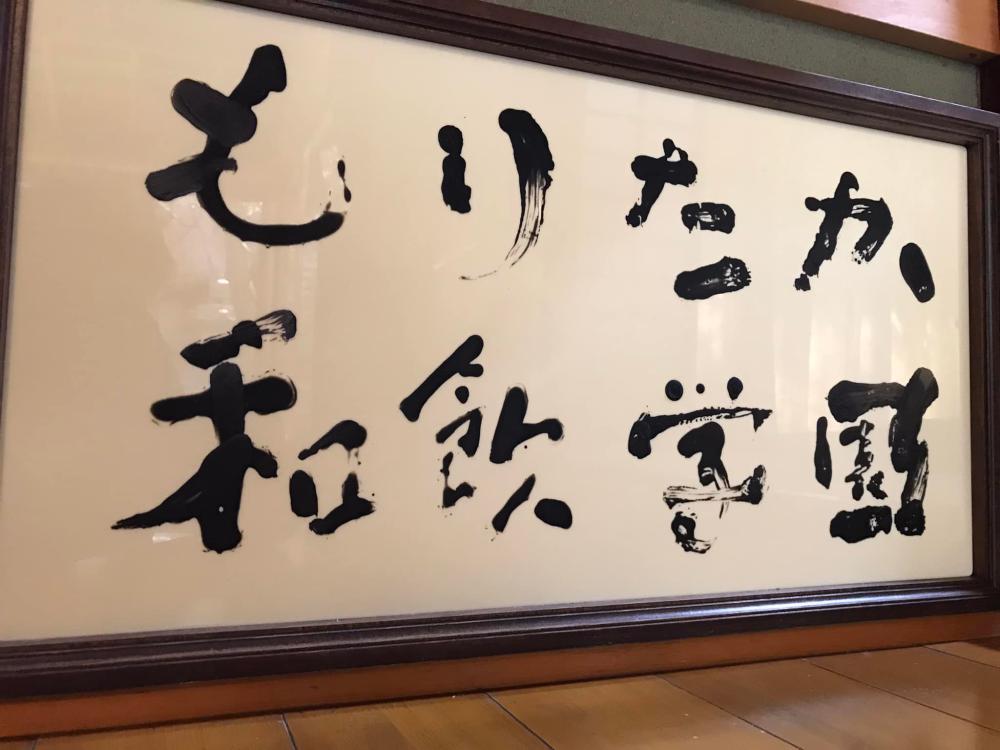 もりたか
和飲学園